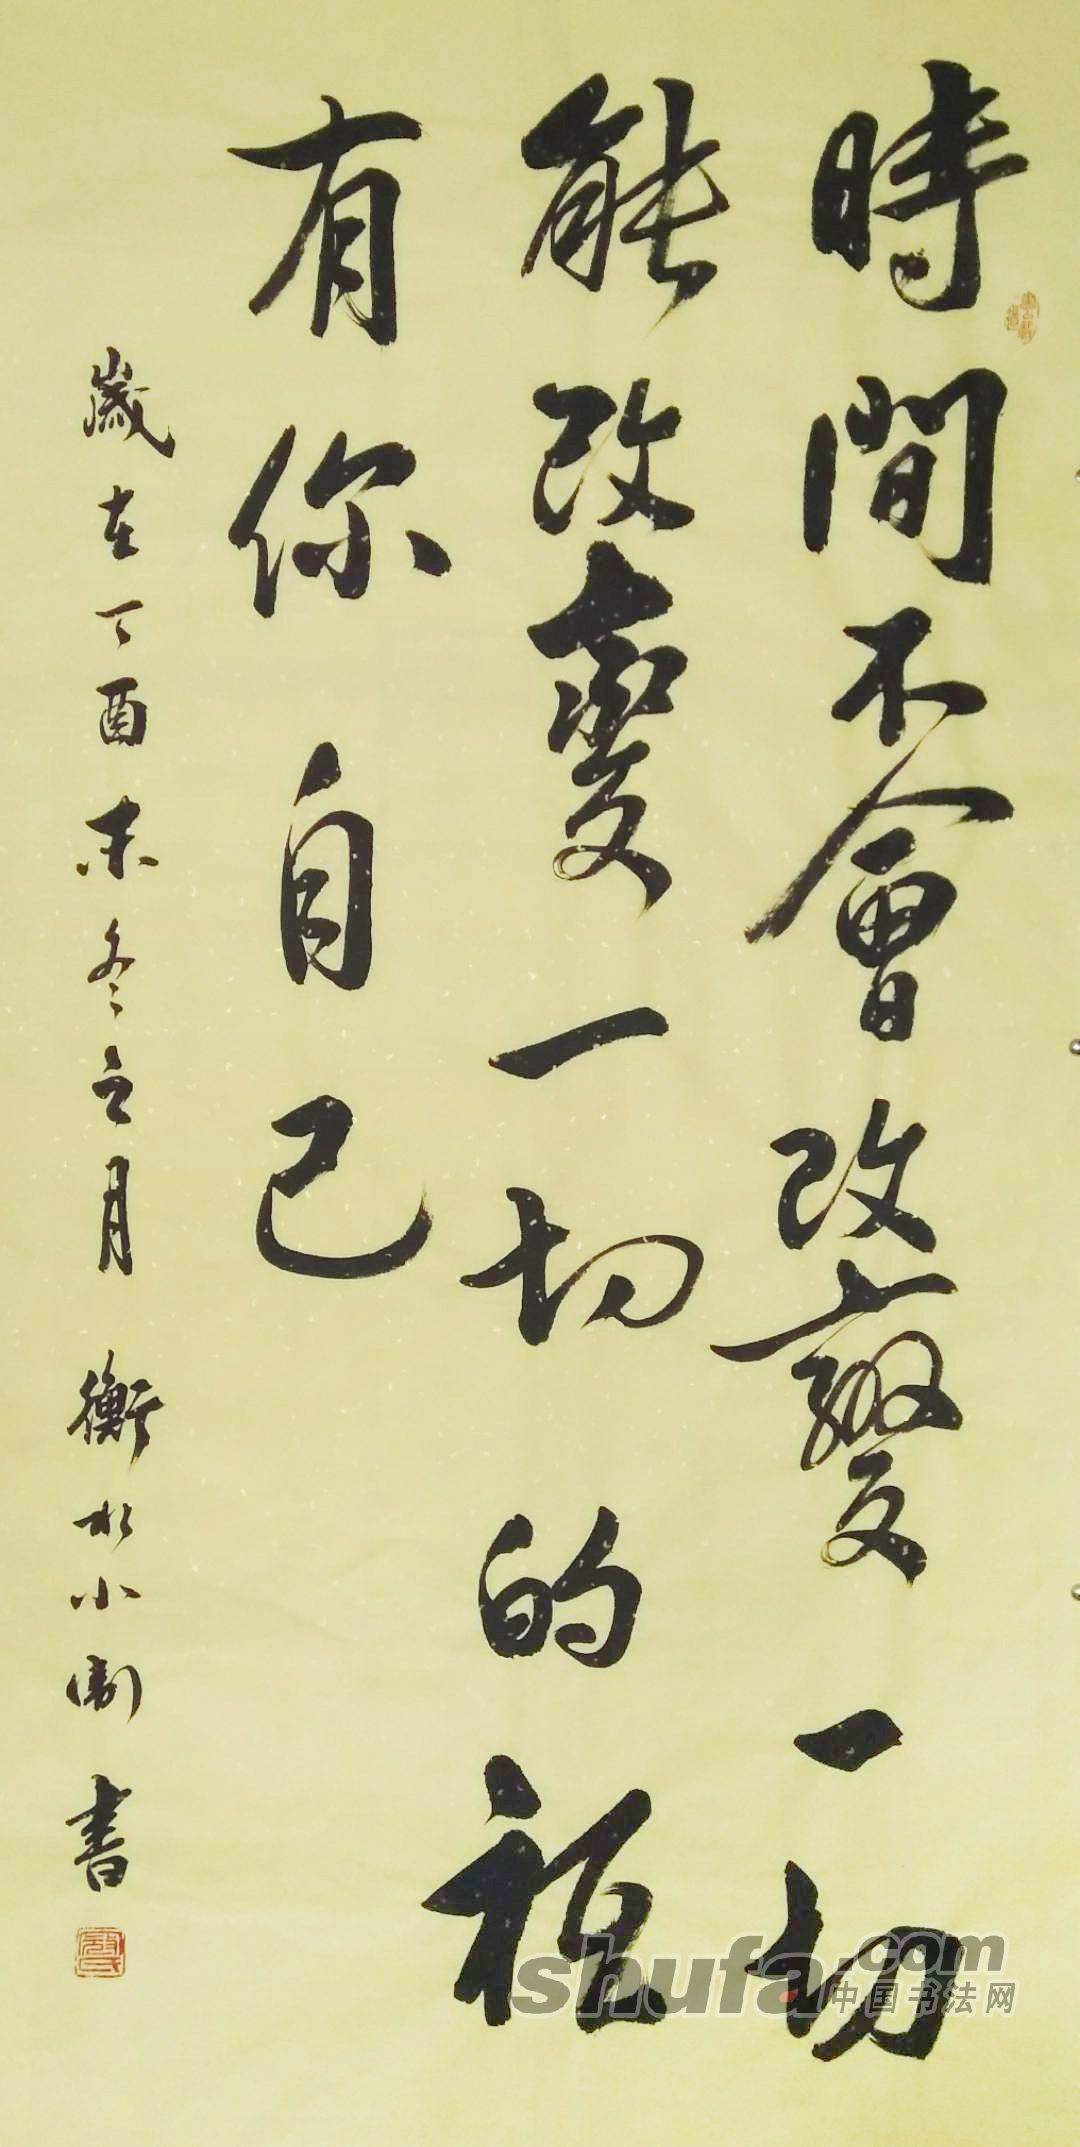 時間不會改變一切
能改變一切的祗
有你自己
歲在丁酉末冬之月 衡水小 書
shufa.com
中国书法网